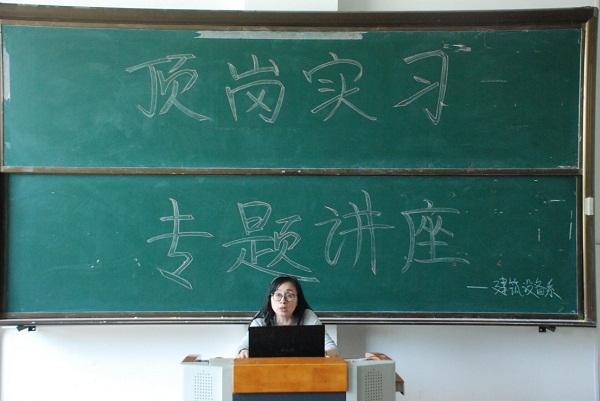 顶岗实习
专题讲座
—建筑设备系